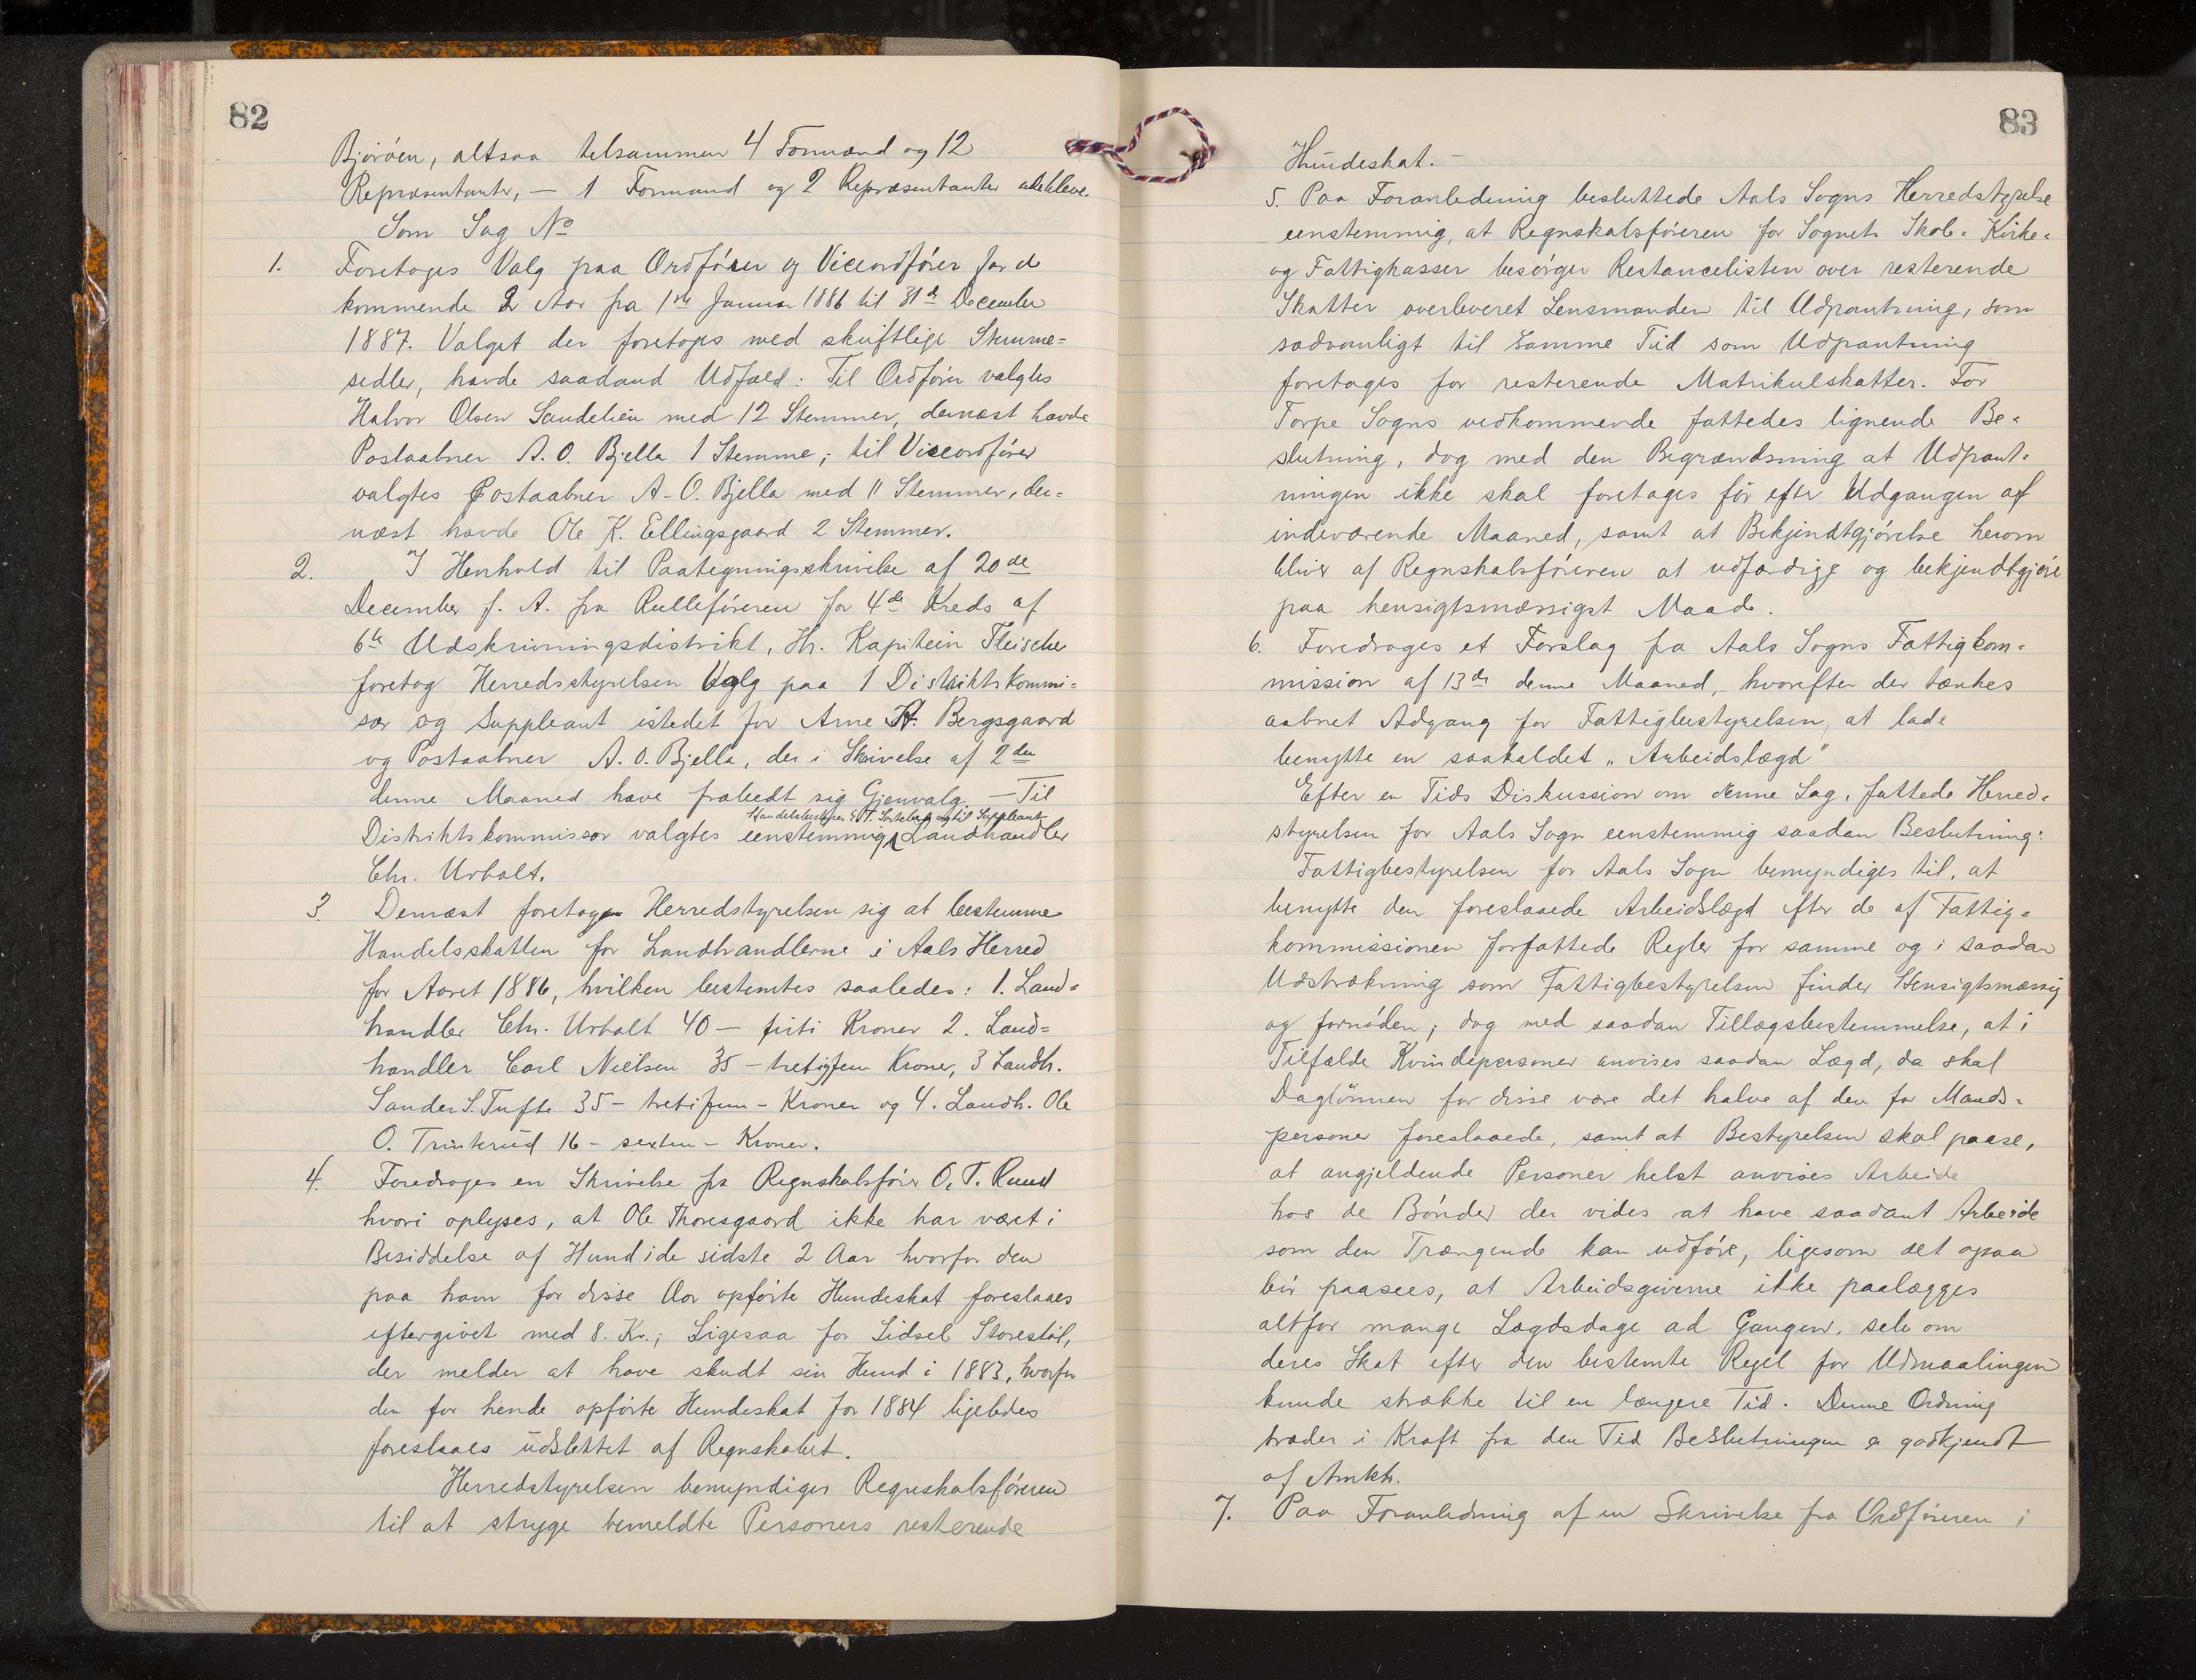 82
Björöen, altsaa tilsammen 4 Formænd og 12
Repræsentanter, — 1 Formand og 2 Repræsentanter udebleve.
Som Sag No
1. Foretoges Valg paa Ordförer og Viceordförer for de
kommende 2 Aar fra 1ste Januar 1886 til 31te December
1887. Valget der foretoges med skriftlige Stemme=
sedler, havde saadand Udfald: Til Ordförer valgtes
Halvor Olsen Sundelien med 12 Stemmer, dernæst havde
Postaabner A. O. Bjella 1 Stemme; til Viceordförer
valgtes Postaabner A. O. Bjella med 11 Stemmer, der=
næst havde Ole K. Ellingsgaard 2 Stemmer.
2. I Henhold til Paategningsskrivelse af 20de
December f. A. fra Rulleföreren for 4de Kreds af
6te Udskrivningsdistrikt, Hr. Kapitein Fleischer
foretog Herredsstyrelsen Valg paa 1 Distriktskommi=
sær og Suppleant istedet for Arne H. Bergsgaard
og Postaabner A. O. Bjella, der i Skrivelse af 2den
denne Maaned have frabedt sig Gjenvalg. — Til
Handelsbestyrer E. T. og til Suppleant
Distriktskommissær valgtes eenstemmig Landhandler
Chr. Urholt.
3. Dernæst foretog Herredstyrelsen sig at bestemme
Handelsskatten for Landhandlerne i Aals Herred
for Aaret 1886, hvilken bestemtes saaledes: 1. Land=
handler Chr. Urholt 40 — firti Kroner 2. Land=
handler Carl Nielsen 35 — tretifem Kroner, 3 Landh.
Sander S. Tufte 35 — tretifem — Kroner og 4. Landh. Ole
O. Trinterud 16 — sexten — Kroner.
4. Foredroges en Skrivelse fra Regnskabsförer O. T. Ruud
hvori oplyses, at Ole Thoresgaard ikke har været i
Besiddelse af Hund i de sidste 2 Aar hvorfor den
paa ham for disse Aar opförte Hundeskat foreslaaes
eftergivet med 8. Kr.; Ligesaa for Sidsel Storestöl,
der melder at have skudt sin Hund i 1883, hvorfor
den for hende opförte Hundeskat for 1884 ligeledes
foreslaaes udslettet af Regnskabet.
Herredstyrelsen bemyndiger Regnskabsföreren
til at stryge bemeldte Personers resterende
83
Hundeskat. —
5. Paa Foranledning besluttede Aals Sogns Herredstyrelse
eenstemmig, at Regnskabsföreren for Sognets Skole= Kirke=
og Fattigkasser besörger Restancelisten over resterende
Skatter overleveret Lensmanden til Udpantning, som
sædvanligt til samme Tid som Udpantning
foretages for resterende Matrikulskatter. For
Torpe Sogns vedkommende fattedes lignende Be=
slutning, dog med den Begrændsning at Udpant=
ningen ikke skal foretages för efter Udgangen af
indeværende Maaned, samt at Bekjendtgjörelse herom
bliver af Regnskabsföreren at udfærdige og bekjendtgjöre
paa hensigtsmæssigst Maade.
6. Foredroges et Forslag fra Aals Sogns Fattigkom=
mission af 13de denne Maaned, hvorefter der tænkes
aabnet Adgang for Fattigbestyrelsen, at lade
benytte en saakaldet „Arbeidslægd"
Efter en Tids Diskussion om denne Sag, fattede Herred=
styrelsen for Aals Sogn eenstemmig saadan Beslutning:
Fattigbestyrelsen for Aals Sogn bemyndiges til, at
benytte den foreslaaede Arbeidslægd efter de af Fattig=
kommissionen forfattede Regler for samme og i saadan
Udstrækning som Fattigbestyrelsen finder Hensigtsmæssig
og fornöden; dog med saadan Tillægsbestemmelse, at i
Tilfælde Kvindepersoner anvises saadan Lægd, da skal
Daglönnen for disse være det halve af den for Mands=
personer foreslaaede, samt at Bestyrelsen skal paase,
at angjeldende Personer helst anvises Arbeide
hos de Bönder der vides at have saadant Arbeide
som den Trængende kan udföre, ligesom det ogsaa
bör paasees, at Arbeidsgiverne ikke paalægges
altfor mange Lægdsdage ad Gangen, selv om
deres Skat efter den bestemte Regel for Udmaalingen
kunde strække til en længere Tid. Denne Ordning
træder i Kraft fra den Tid Beslutningen er godkjendt
af Amtet.
7. Paa Foranledning af en Skrivelse fra Ordföreren i